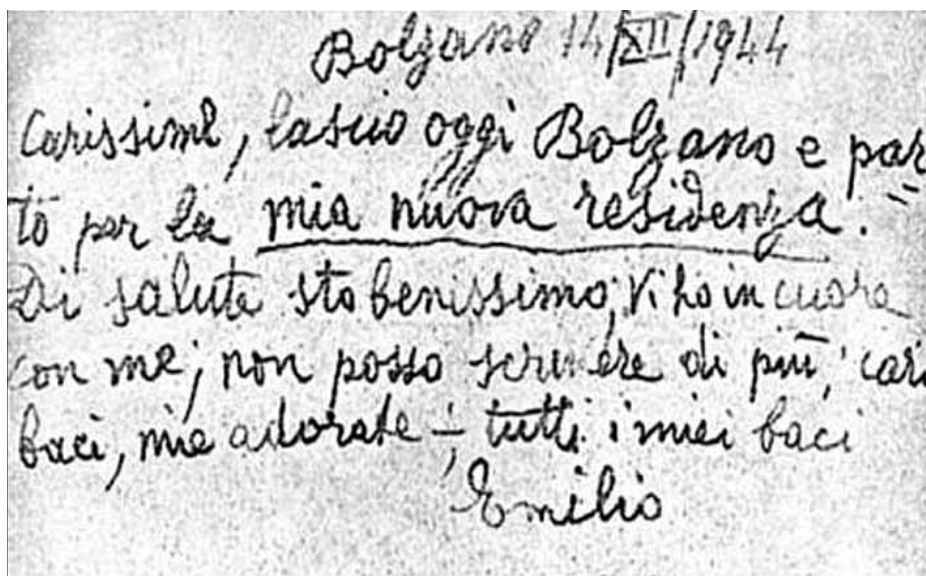 Bolzano 14/XII/1944
Carissime, lascio oggi Bolzano e par
to per la mia nuova residenza. =
Di salute sto benissimo; vi ho in cuore
con me; non posso scrivere di più; cari
baci, mie adorate - ; tutti i miei baci
Emilio